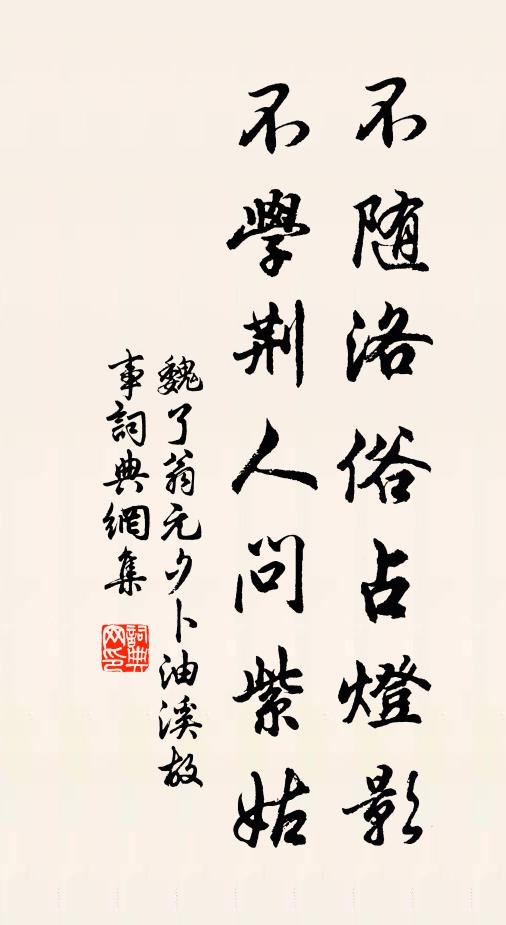 不随洛俗占燈影
不學荆人問紫姑
魏了翁元夕卜油溪故
事詞典網集
詞典网印